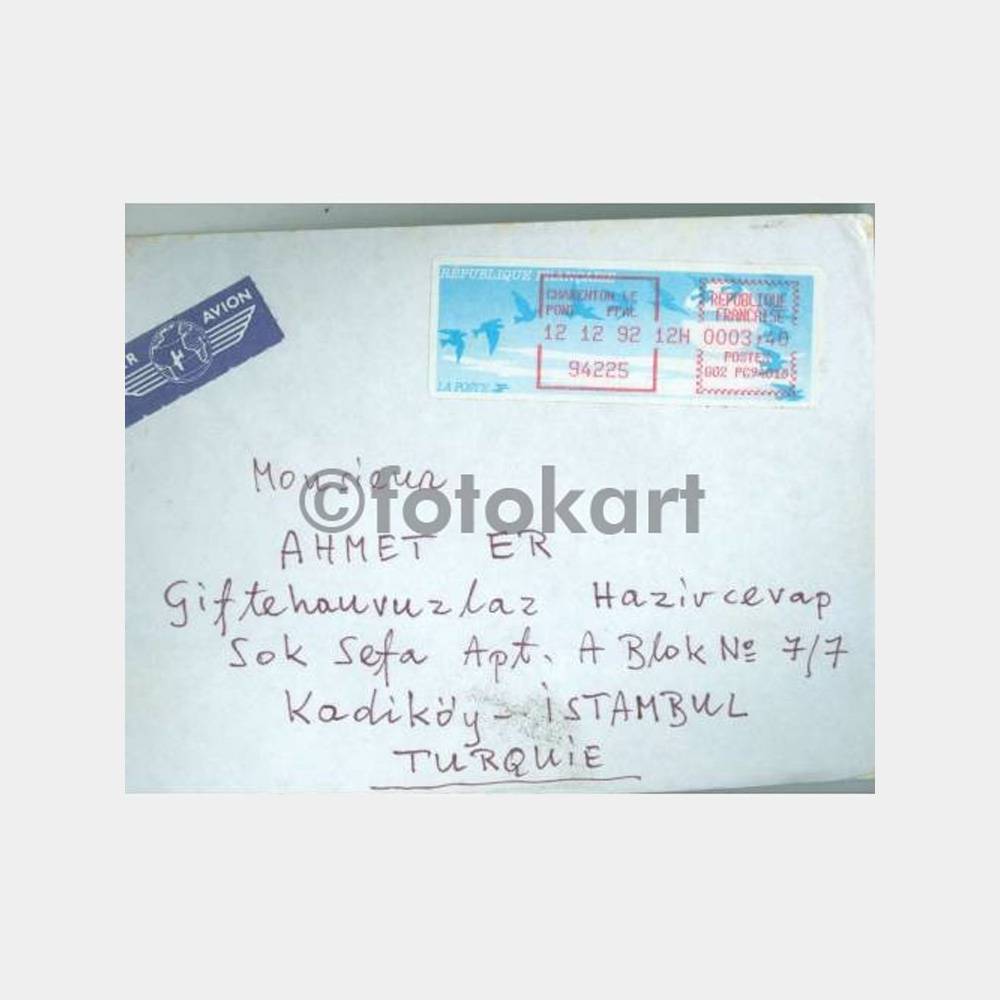 RÉPUBLIQUE FRANÇAISE
CHARENTON LE
PONT PPAL
12 12 92 12H 0003,40
94225
REPUBLIQUE
FRANCAISE
POSTES
G02 PC94018
LA POSTE
AVION
Monsieur
©fotokart
AHMET ER
Giftehauvuzlaz Hazircevap
Sok Sefa Apt. A Blok Nº 7/7
Kadiköy - İSTAMBUL
TURQUİE